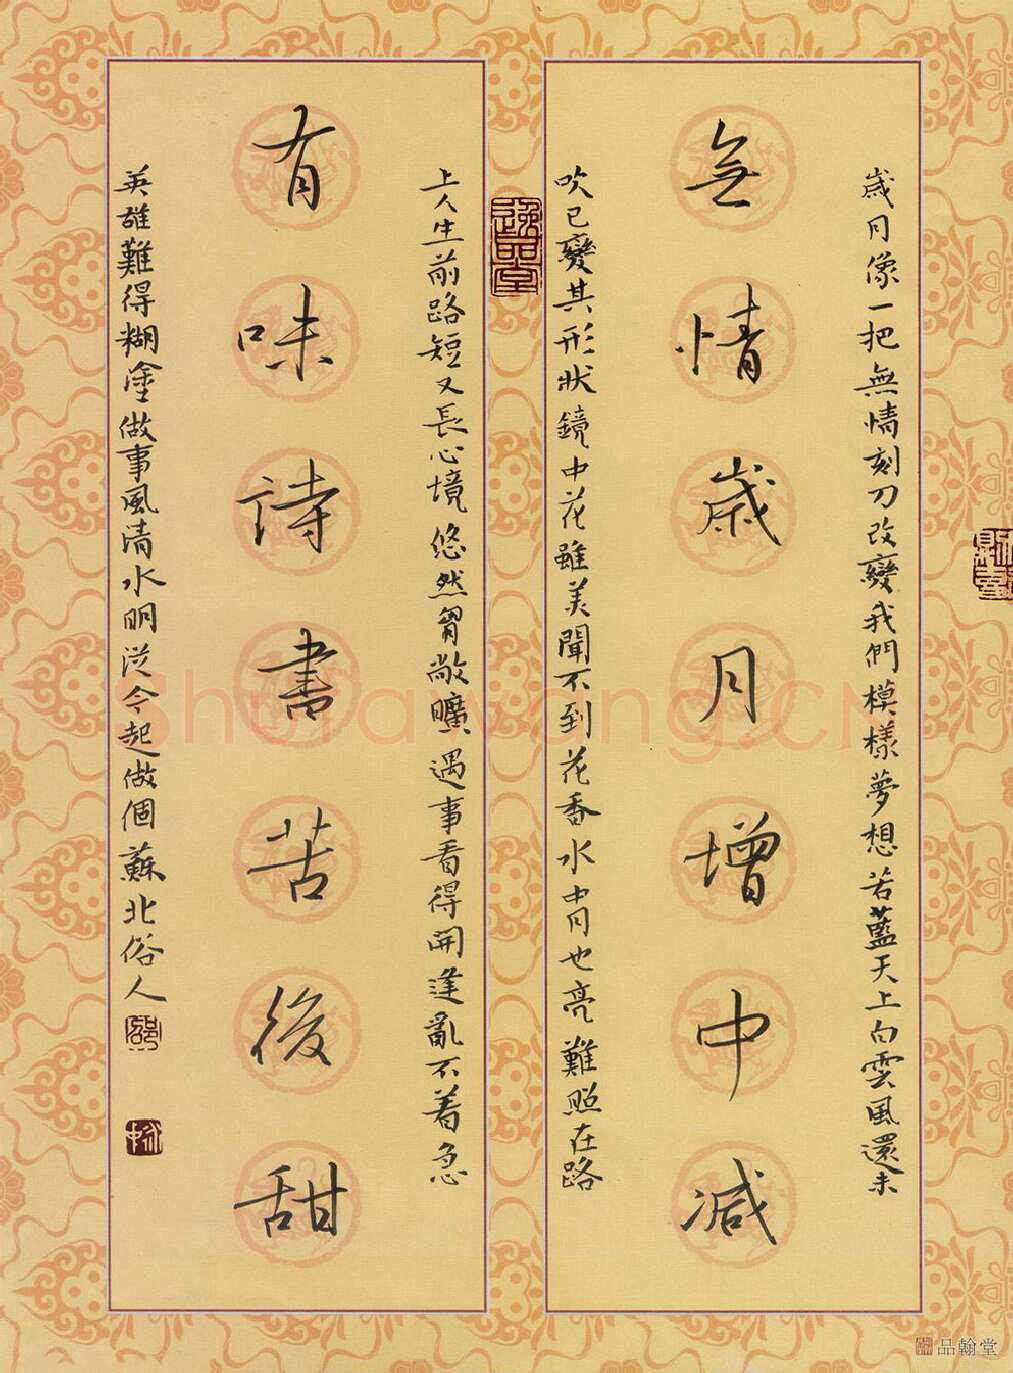 歲月像一把無情刻刀改變我們模樣夢想若藍天上白雲風還未
無情歲月增中減
吹已變其形狀鏡中花雖美聞不到花香水中月也亮難照在路
逸品堂
上人生前路短又長心境悠然胷敞曠遇事看得開逢亂不着急
有味詩書苦後甜
英雄難得糊塗做事風清水明從今起做個蘇北俗人
shufawang.CN
品翰堂